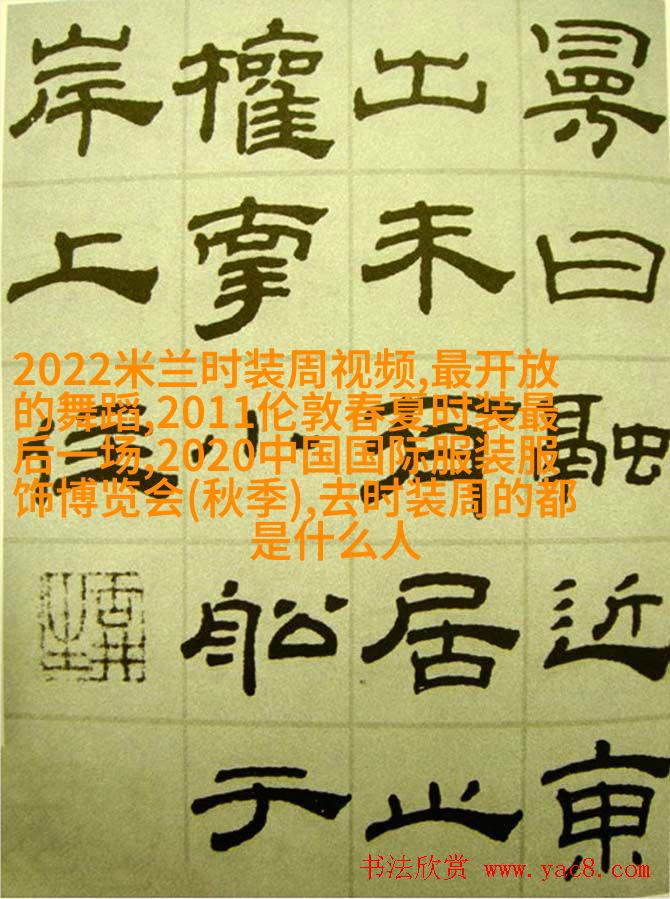 2022米兰时装周视频,最开放
的舞蹈,2011伦敦春夏时装最
后一场,2020中国国际服装服
饰博览会(秋季),去时装周的都
是什么人
曰融近東
出未居止
權小舩于
岸上住
书法欣赏 www.yac8.com